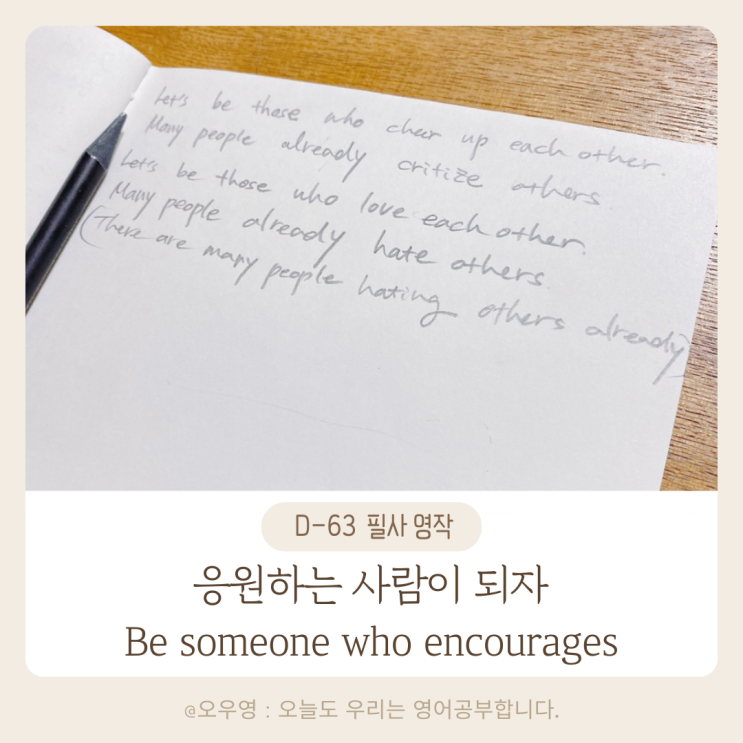 Let's be those who cheer up each other.
Many people already critize others.
Let's be those who love each other.
Many people already hate others.
(There are many people hating others already)
D-63 필사 명작
응원하는 사람이 되자
Be someone who encourages
@오우영 : 오늘도 우리는 영어공부합니다.